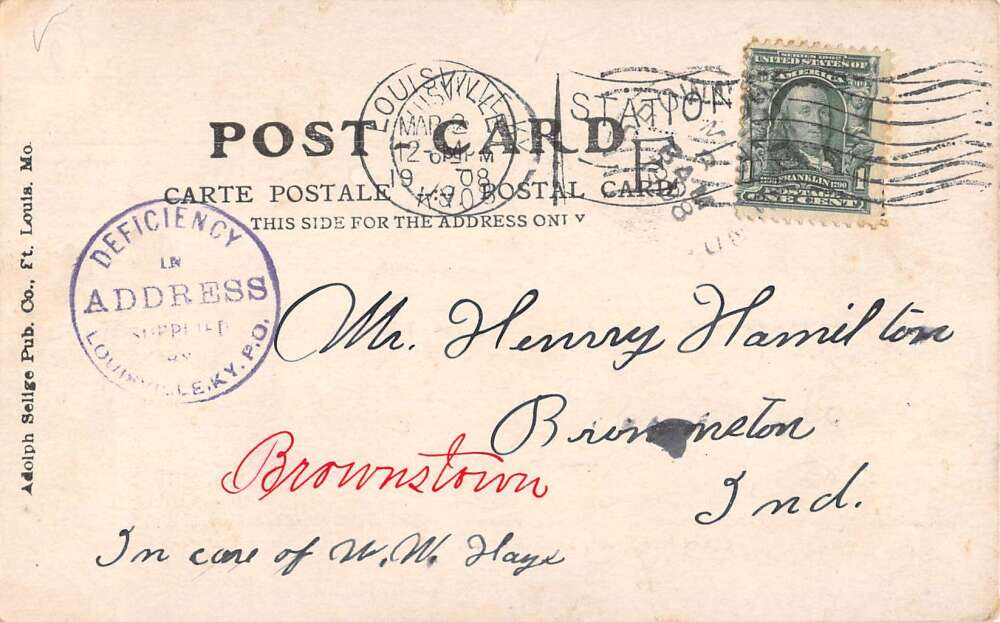 LOUISVILLE
MAR 2
12
19 08
STATION
SERIES 1902
UNITED STATES OF
AMERICA
FRANKLIN
1 1
POSTAGE
ONE CENT
POST CARD
CARTE POSTALE POSTAL CARD
THIS SIDE FOR THE ADDRESS ONLY
DEFICIENCY
IN
ADDRESS
SUPPLIED
BY
LOUISVILLE, KY. P.O.
Adolph Selige Pub. Co., St. Louis, Mo.
Mr. Henrry Hamilton
Brownston
Brownstown
Ind.
In care of W. W. Hays